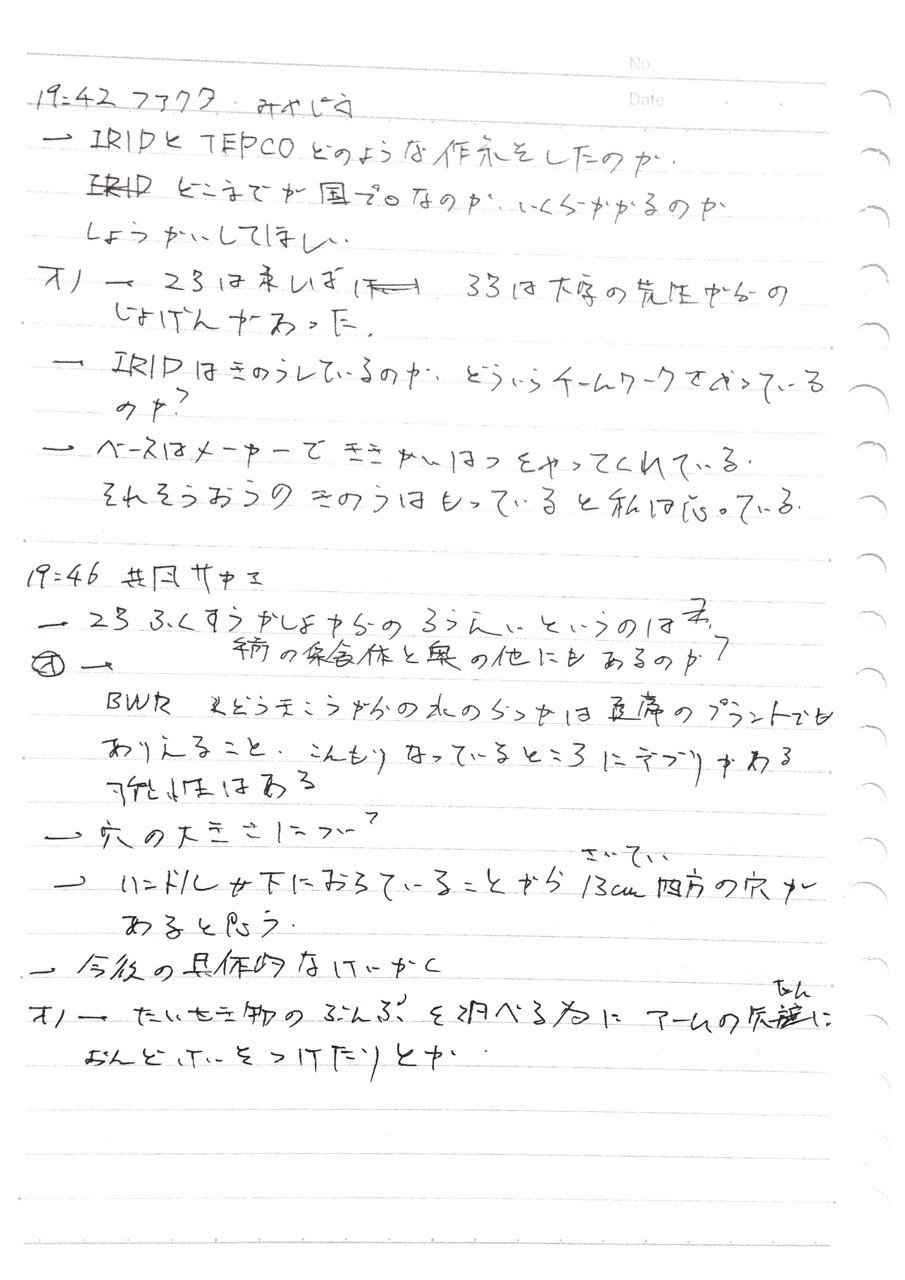 No.
Date
19:42 ファクタ みやじま
→ IRIDと TEPCO どのような作業をしたのか.
どこまでが国プロなのか、いくらかかるのか
しょうかいしてほしい.
オノ → 23は 33は大学の先生からの
じょげんがあった.
→ IRIDはきのうしているのか. どういうチームワークをやっている
のか?
→ ベースはメーカーで ききかいはつをやってくれている.
それそうおうの きのうはもっていると私は思っている.
19:46 共同
→ 23 ふくすうかしょからの ろうえいというのは
の集合体と奥の他にも あるのか?
オ →
BWR からの水の は のプラントでも
ありえること. こんもりなっているところにデブリがある
可能性はある
→ 穴の大きさについて
→ ハンドルが下におちていることから さいてい 13cm四方の穴が
あると思う.
→ 今後の具体的なけいかく
オノ → たいせき物のぶんぷを調べる為に アームの先端に
おんどけいをつけたりとか.